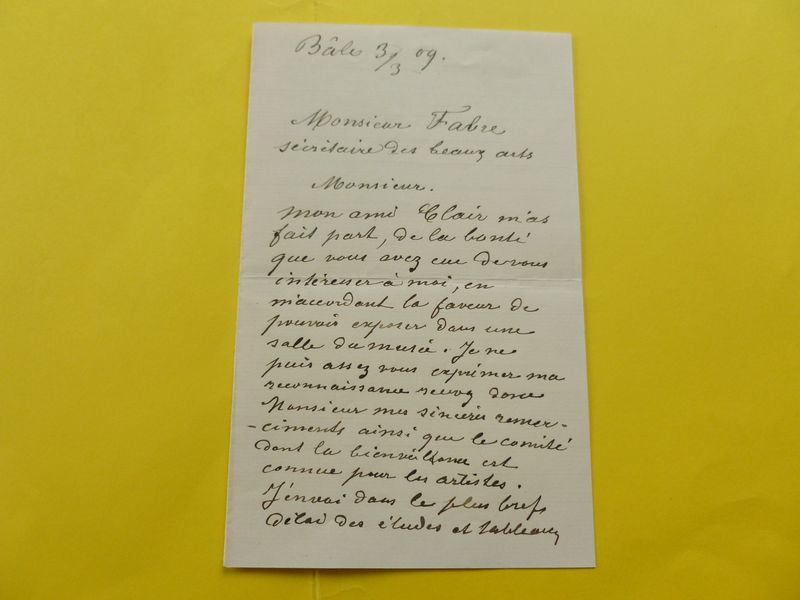 Bâle 3/3 09.
Monsieur Fabre
sécrétaire des beaux arts
Monsieur.
Mon ami Clair m'as
fait part, de la bonté
que vous avez eue de vous
intéresser à moi, en
m'accordant la faveur de
pouvoir exposer dans une
salle du musée. Je ne
puis assez vous exprimer ma
reconnaissance recevez donc
Monsieur mes sincères remer-
-ciments ainsi que le comité
dont la bienveillance est
connue pour les artistes.
J'envoi dans le plus brefs
délai des études et tableaux